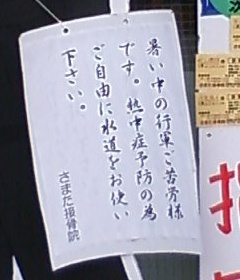 暑い中の行軍ご苦労様
です。熱中症予防の為
ご自由に水道をお使い
下さい。
さまた接骨院
指